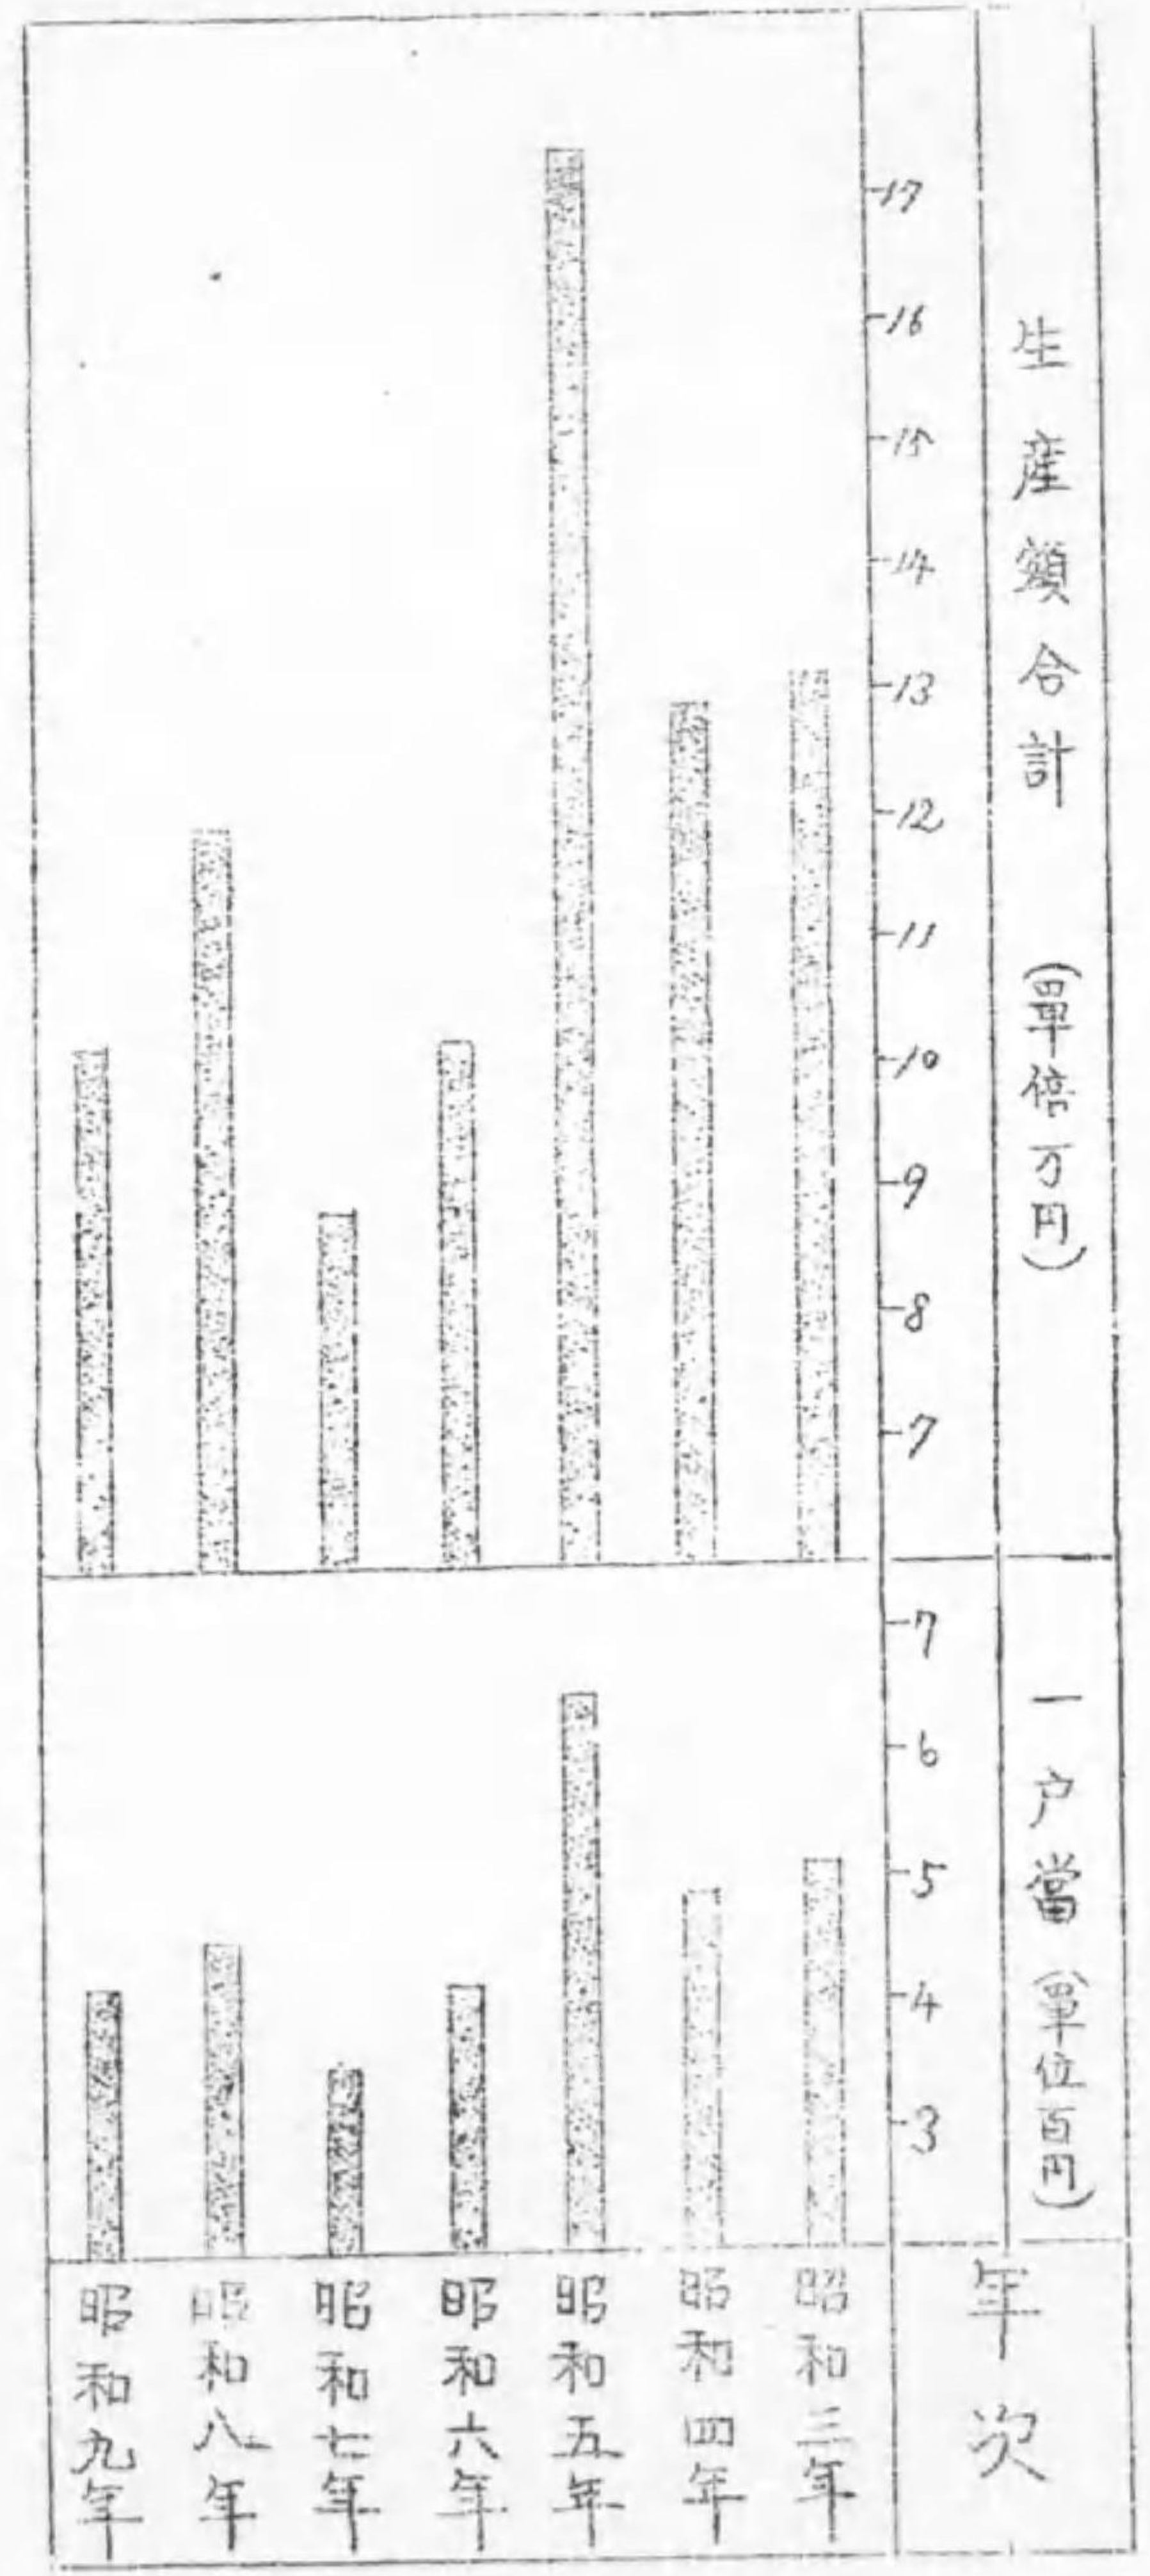 生産額合計 (單倍万円)
17
16
15
14
13
12
11
10
9
8
7
一户當 (單位百円)
7
6
5
4
3
年次
昭和三年
昭和四年
昭和五年
昭和六年
昭和七年
昭和八年
昭和九年